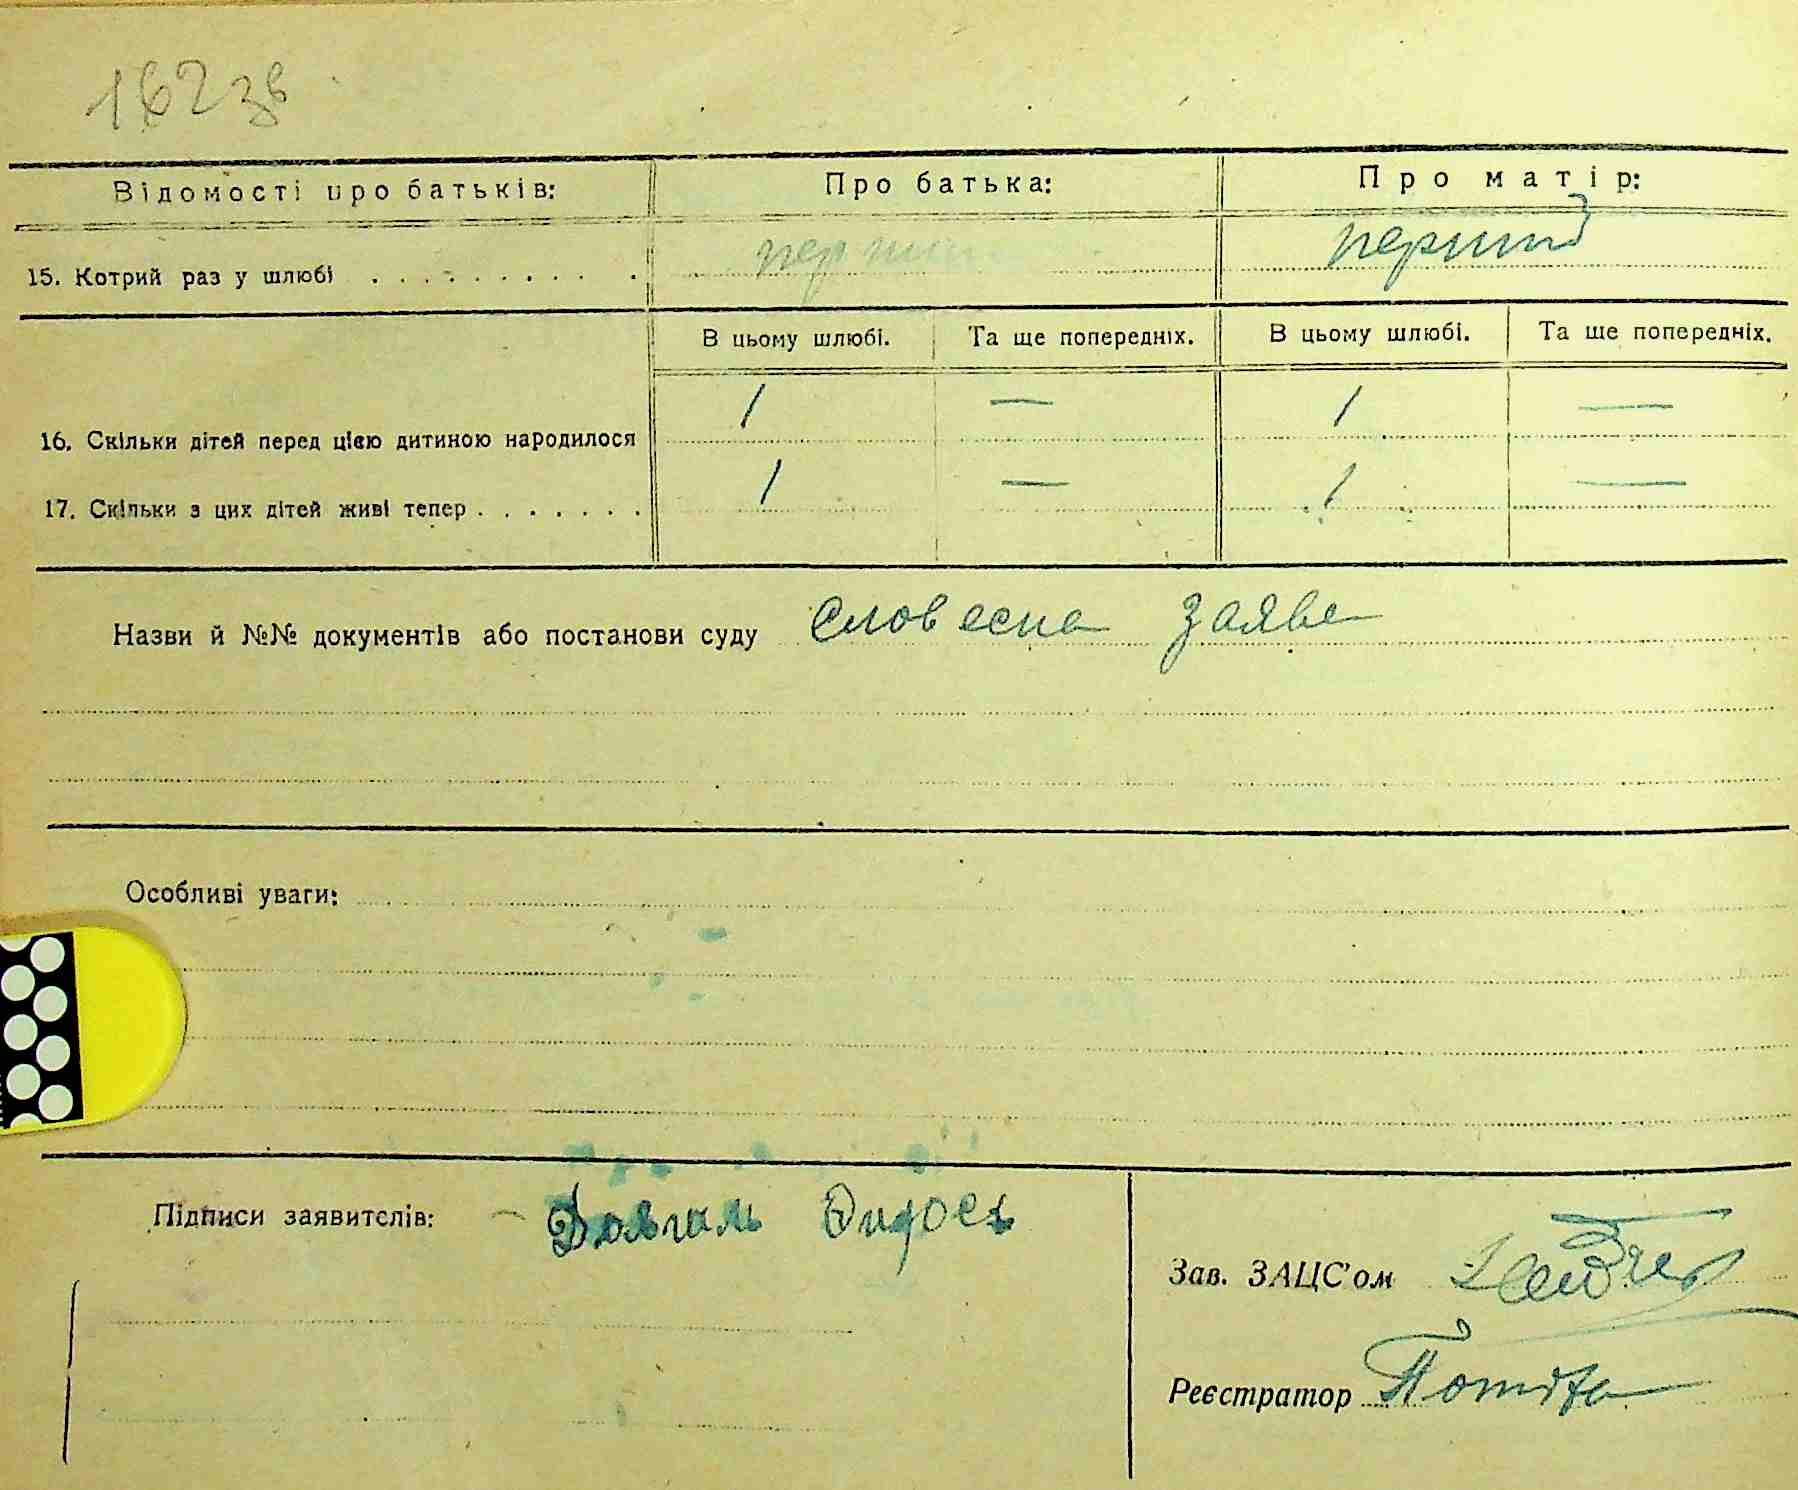 162зв
Відомості про батьків: Про батька: Про матір:
15. Котрий раз у шлюбі . . . . . . . . . перший перший
В цьому шлюбі. Та ще попередніх. В цьому шлюбі. Та ще попередніх.
16. Скільки дітей перед цією дитиною народилося 1 — 1 —
17. Скільки з цих дітей живі тепер . . . . . . . 1 — 1 —
Назви й №№ документів або постанови суду словесна заява
Особливі уваги:
Підписи заявителів: Довгаль
Зав. ЗАЦС'ом
Реєстратор